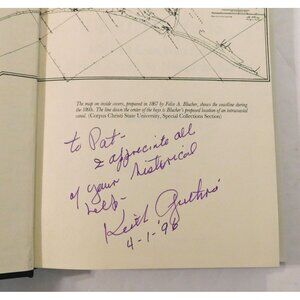 The map on inside covers, prepared in 1867 by Felix A. Blucher, shows the coastline during
the 1860s. The line down the center of the bays is Blucher's proposed location of an intracoastal
canal. (Corpus Christi State University, Special Collections Section)
to Pat-
I appreciate all
of your historical
help-
Keith Guthrie
4-1-'96